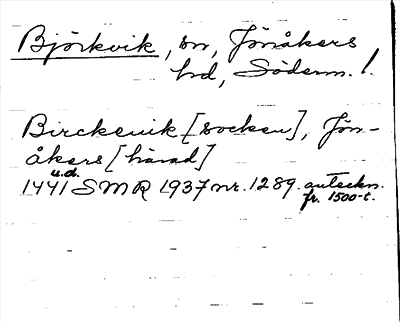 Björkvik, sn, Jönåkers
hd, Söderm. l.
Birckeuik [socken], Jön-
åkers [härad]
1441 u.d. SMR 1937 nr. 1289. anteckn.
fr. 1500-t.